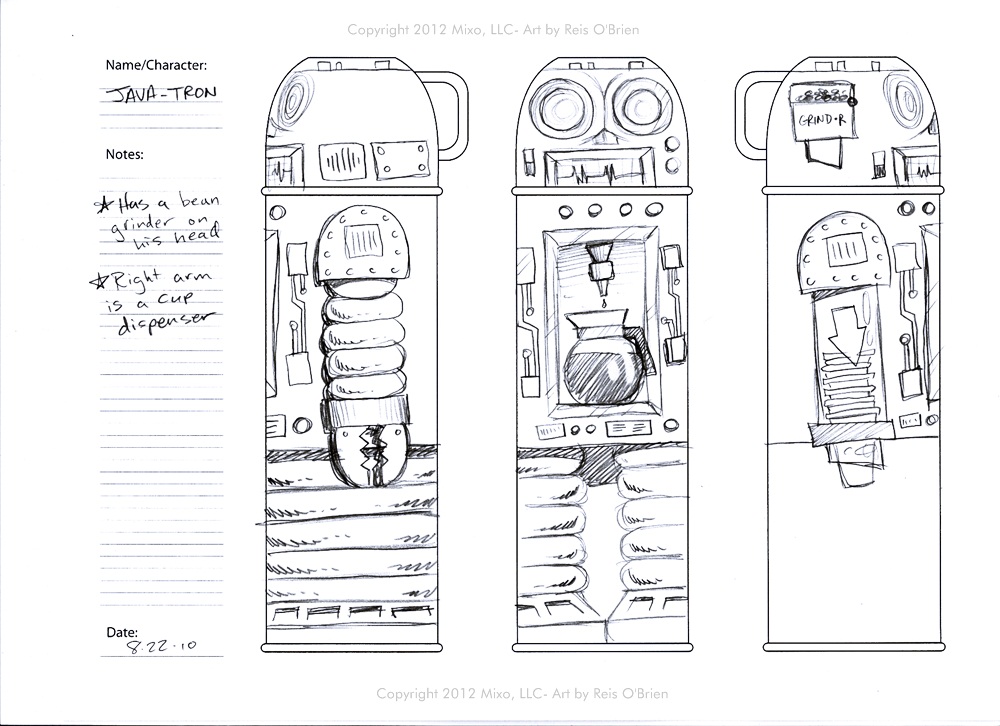 Copyright 2012 Mixo, LLC- Art by Reis O'Brien
Name/Character:
JAVA-TRON
Notes:
★ Has a bean
grinder on
his head
★ Right arm
is a cup
dispenser
Date:
8.22.10
GRIND·R
Copyright 2012 Mixo, LLC- Art by Reis O'Brien